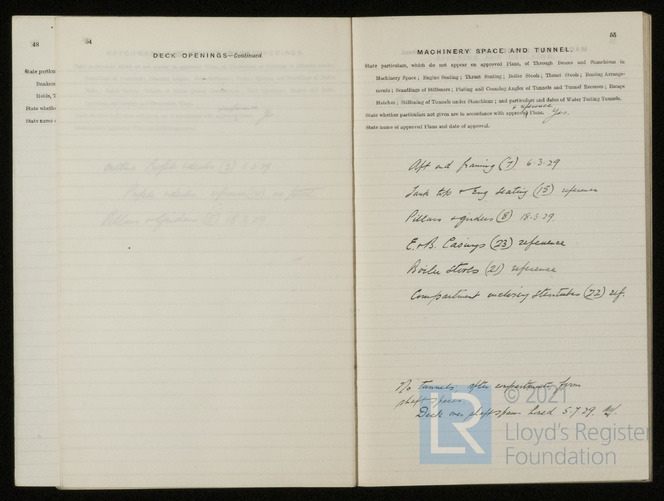 48
State particu
Bunkers
Holds, T
State whethe
State name o
54
DECK OPENINGS—Continued.
55
MACHINERY SPACE AND TUNNEL.
State particulars, which do not appear on approved Plans, of Through Beams and Stanchions in
Machinery Space; Engine Seating; Thrust Seating; Boiler Stools; Thrust Stools; Bossing Arrange-
ments; Scantlings of Stiffeners; Plating and Connecting Angles of Tunnels and Tunnel Recesses; Escape
Hatches; Stiffening of Tunnels under Stanchions; and particulars and dates of Water Testing Tunnels.
& reference
State whether particulars not given are in accordance with approved Plans. Yes.
State name of approved Plans and date of approval.
Aft end framing (7) 6.3.29
Tank top & Eng seating (15) reference
Pillars & girders (8) 18.3.29
E. & B. Casings (23) reference
Boiler stools (21) reference
Compartment enclosing sterntubes (22) ref.
No Tunnels. after compartments form
shaft spaces.
Deck over shaft space hosed 5.7.29.
© 2021
LR
Lloyd's Register
Foundation